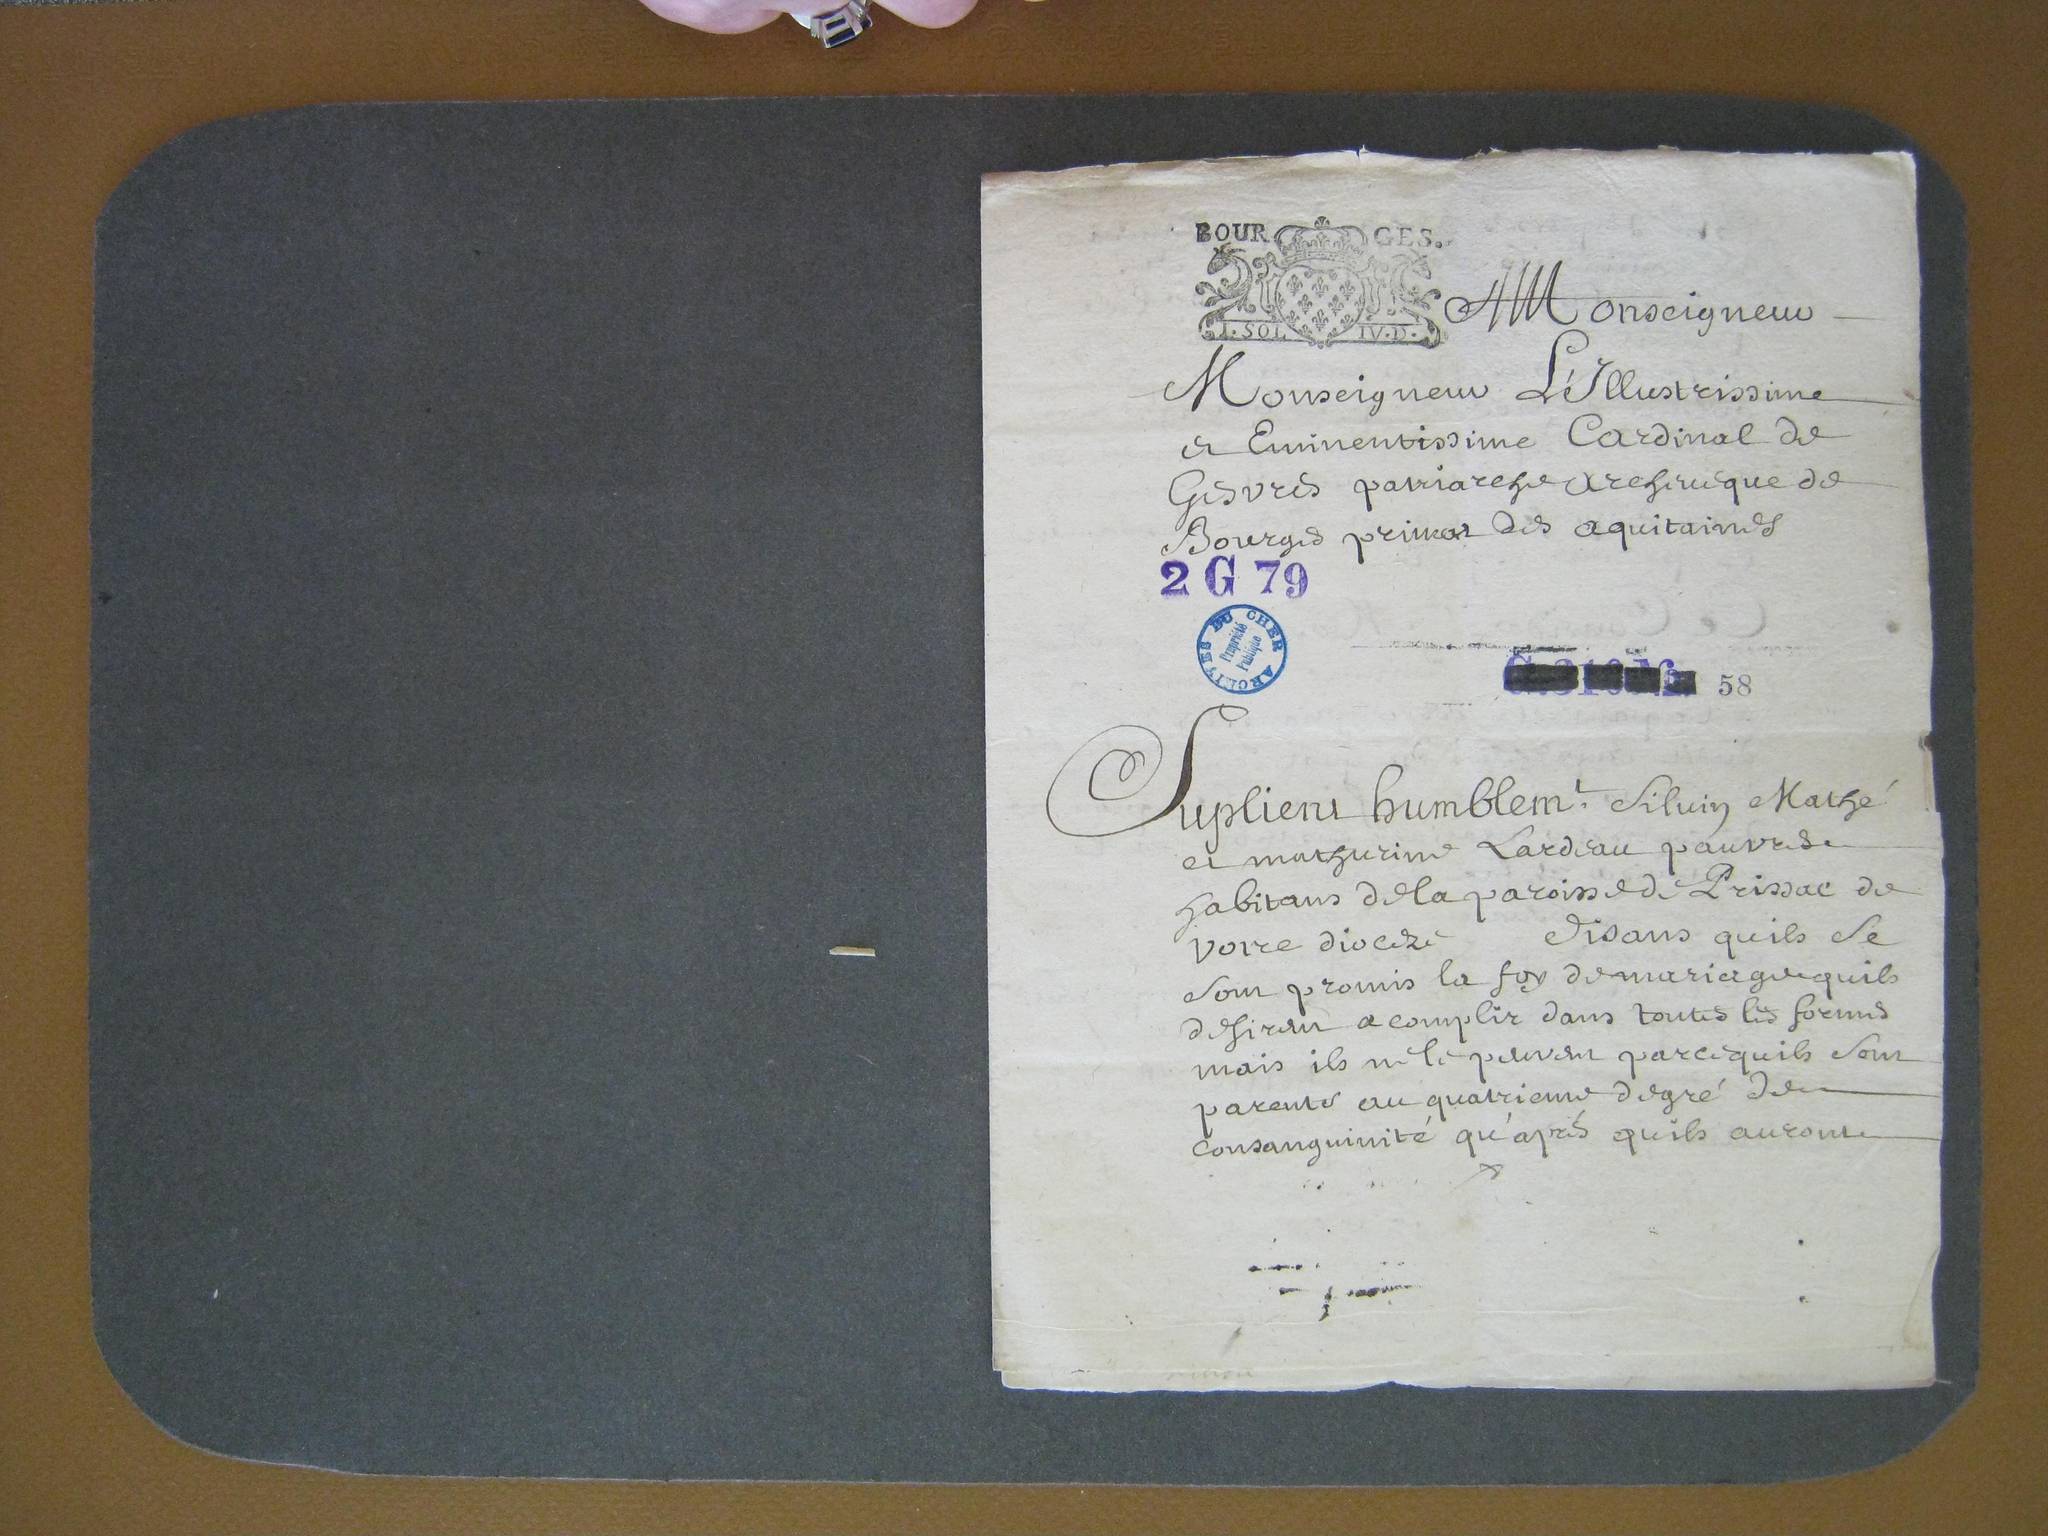 BOUR GES.
I. SOL IV. D.
A Monseigneur
Monseigneur L'Illustrissime
et Eminentissime Cardinal de
Gesvres patriarche Archeveque de
Bourges primat des aquitaines
2 G 79
ARCHIVES DU CHER
Propriété
Publique
58
Suplient humblemt. Silvin Mathé
et mathurine Lardeau pauvres
habitans de la paroisse de Prissac de
votre diocèze disans quils se
sont promis la foy de mariage quils
desirent acomplir dans toutes les formes
mais ils ne le peuvent parcequils sont
parents au quatrieme degré de
consanguinité qu'après quils auront